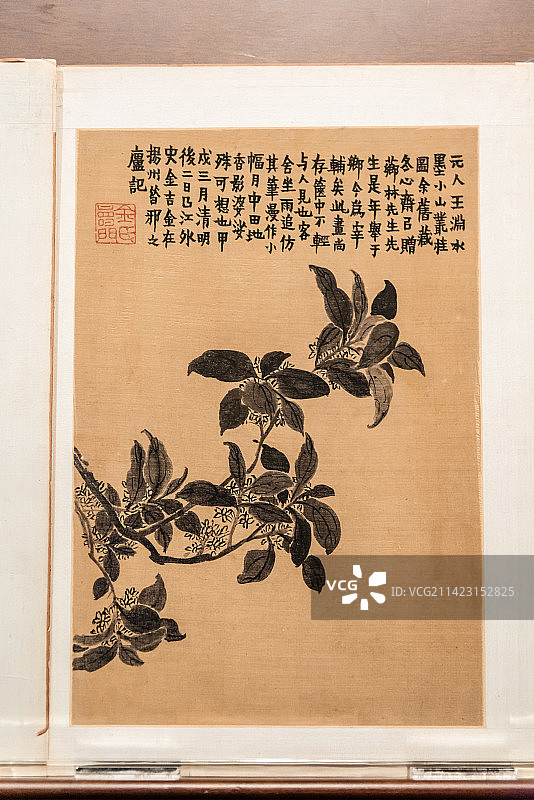 元人王淵水
墨小山叢桂
圖余舊藏
冬心齋已贈
薌林先生先
生是年舉于
鄉今為宰
輔矣此畫尚
存篋中不輕
与人見也客
舍坐雨追仿
其筆漫作小
幅月中田地
香影婆娑
殊可想也甲
戌三月清明
後二日七江外
史金吉金在
揚州昔邪之
廬記
金氏
壽門
VCG
ID: VCG211423152825